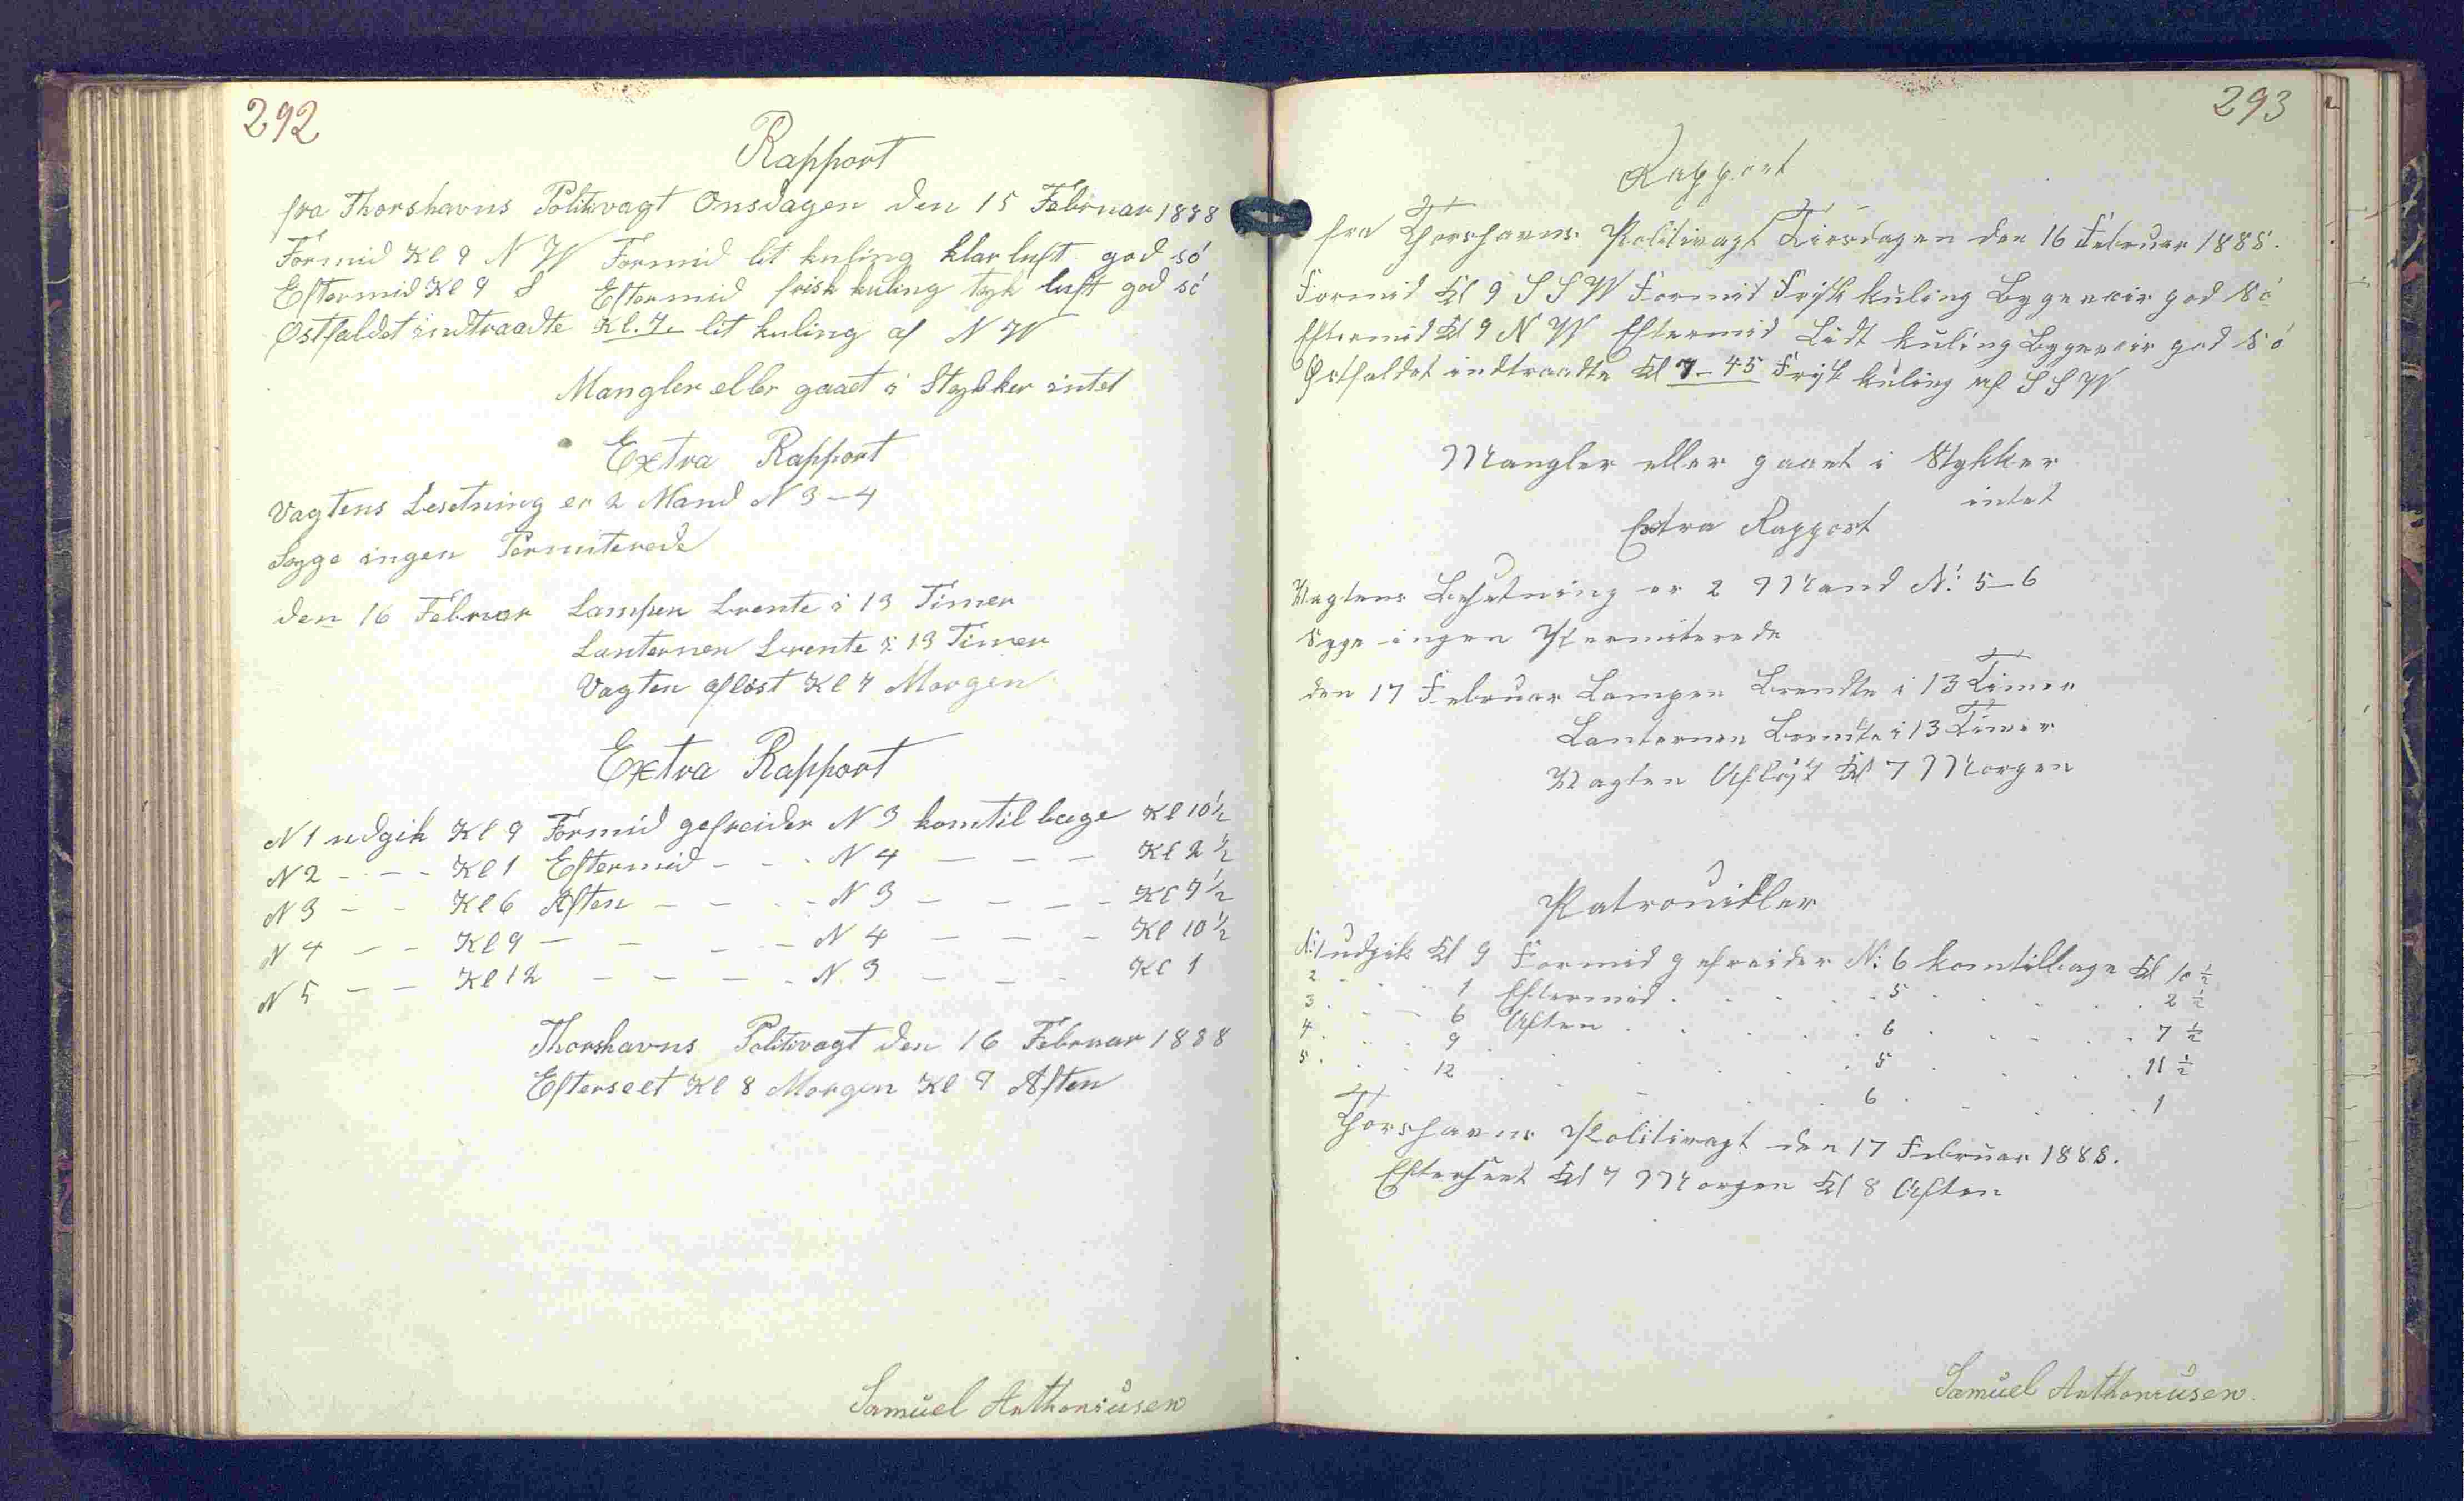 292
Rapport
fra Thorshavns Politivagt Onsdagen den 15 Februar 1888
Formid Kl 9 N W Formid lit kuling klar luft god só
Eftermid Kl 9 S Eftermid frisk kuling tyk luft god só
Østfaldet indtraadte Kl. 7 lit kuling af N W
Mangler eller gaaet i Stykker intet
Extra Rapport
Vagtens besetning er 2 Mand N 3 – 4
Syge ingen Permiterede
den 16 Februar Lampen brente i 13 Timer
Lanternen brente i 13 Timer
Vagten aflóst Kl 7 Morgen
Extra Rapport
N 1 udgik Kl 9 Formid gefreider N 3 komtilbage Kl 10 ½
N 2 - - - Kl 1 Eftermid - - - N 4 — — — Kl 2 ½
N 3 - - Kl 6 Aften — — - - N 3 — — — - Kl 7 ½
N 4 — - Kl 9 — — — - N 4 — — - Kl 10 ½
N 5 — — Kl 12 — — — - N. 3 — — - Kl 1
Thorshavns Politivagt den 16 Februar 1888
Efterseet Kl 8 Morgen Kl 9 Aften
Samuel Anthoniusen
293
Rapport
fra Thorshavns Politivagt Tirsdagen den 16 Februar 1888.
Formid Kl 9 S S W Formid Frisk kuling Bygeveir god Só
Eftermid Kl 9 N W Eftermid Lidt kuling Bygeveir god Só
Østfaldet indtraadte Kl 7 – 45 Frisk kuling af S S W
Mangler eller gaaet i Stykker
intet
Extra Rapport
Vagtens Besetning er 2 Mand N: 5 – 6
Syge ingen Permiterede
den 17 Februar Lampen Brendte i 13 Timer
Lanternen Brendte i 13 Timer
Vagten Afløst Kl 7 Morgen
Patrouiller
N: 1 udgik Kl 9 Formid gefreider N: 6 komtilbage Kl 10 ½
2 - - - 1 Eftermid . . . . 5 . . . . 2 ½
3 . - - 6 Aften . . . . 6 . . . . 7 ½
4 . . . 9 . . . . 5 . . . . 11 ½
5 . . . 12 . . . . 6 . . . . 1
Thorshavns Politivagt den 17 Februar 1888.
Efterseet Kl 7 Morgen Kl 8 Aften
Samuel Anthoniusen